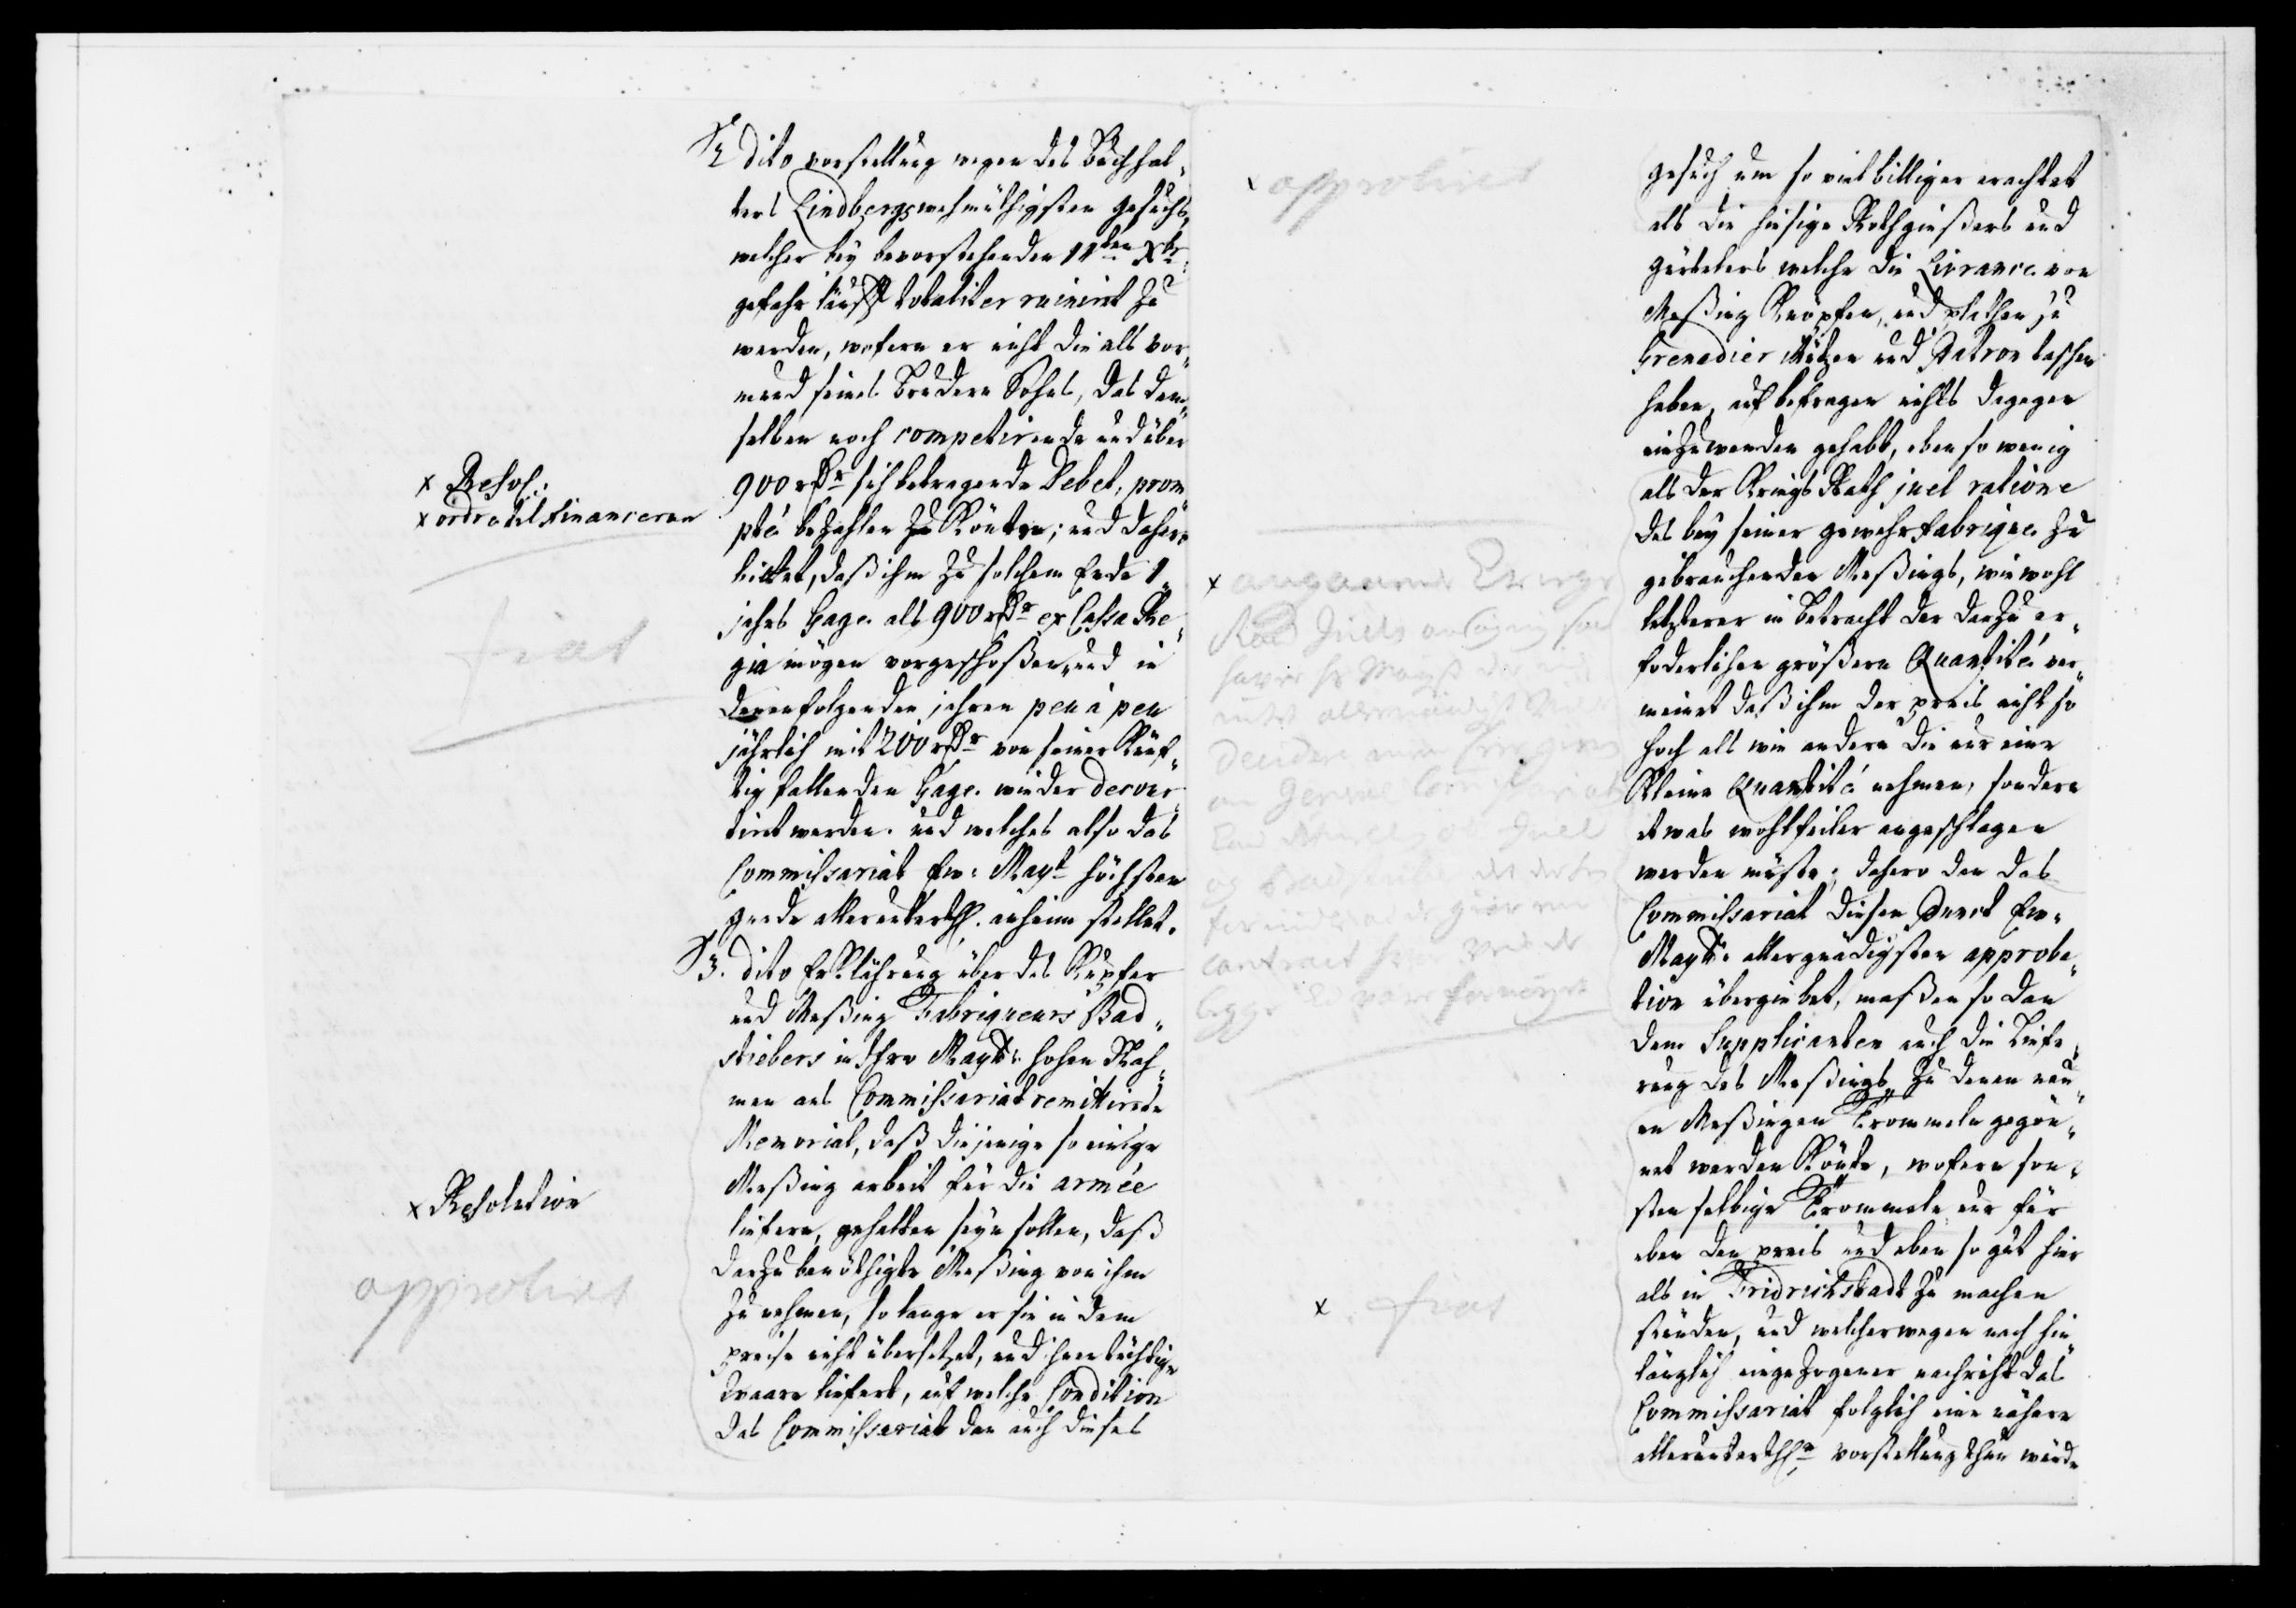 2 dito vorstellung wegen des Buchhal„
ters Lindbergs wehmüthigsten gesuchs,
welcher bey bevorstehenden 11ten Xbr
gefahr läufft totaliter ruinirt zu
werden, wofern er nicht die als vor„
mund seines Brudern Sohns, das dem„
selben noch competirende und über
900 rdr sich betragende Debet, prom
pte bezahlen zu Könten; und dahero
bittet, daß ihm zu solchem Ende 1„
jahrs Gage als 900 rdr ex Cassa Re„
gia mögen vorgeschoßen, und in
denen folgenden jahren peu à peu
jährlich mit 200 rdr von seiner Künf„
tig fallenden Gage wieder decour„
tirt werden. und welches also das
Commissariat Ew: Mayt höchsten
gnade allerunterth. anheim stellet.
3. dito Erklährung über des Kupfer
und Meßing Fabriqueurs Bad„
stiebers in Ihro Mayt: hohen Nah„
men ans Commissariat remittirte
Memorial, daß diejenige so einige
Meßing arbeit für die armée
liefern, gehalten seyn sollen, daß
darzu benöthigte Meßing von ihm
zu nehmen, so lange er sie in dem
preise nicht übersetzet, und ihnen tüchtige
Waare liefert, auf welche Condition
das Commissariat dan auch dieses
x Resol:
x ordre til Financeren
fiat
x Resolution
approbirt
x approbirt
x angaaende Krigs
Raad Juels ansøgning
haver
allernaadigst
decidere
General Commissariat
Juel
og
contract
begge
x fiat
gesuch um so viel billiger erachtet
als die hiesige Rothgießers und
Gürtelers welche die Livrance von
Meßing Knöpfen, und plathen zu
Grenadier Mützen und Patron taschen
haben, auf befragen nichts dagegen
einzuwenden gehabt, eben so wenig
als der Kriegs Rath juel ratione
des bey seiner gewehr fabrique zu
gebrauchenden Meßings, wie wohl
letzterer in betracht der darzu er„
foderlichen größern Quantité ver„
meinet daß ihm der preis nicht so
hoch als wie andern die nur eine
Kleine Quantité nehmen, sondern
etwas wohlfeiler angeschlagen
werden müste; dahero den das
Commissariat diesen punct Ew.
Mayt: allergnädigsten approba„
tion übergiebet, maßen so dan
dem Supplicanten auch die Liefe„
rung des Meßings zu denen neu„
en Meßingen Trommeln gegön„
net werden Könte, wofern son„
sten selbige Trommeln nur für
eben den preis und eben so gut hier
als in Fridrichstadt zu machen
stünden, und welcherwegen nach hin„
länglich eingezogener nachricht das
Commissariat folglich eine nähere
allerunterthe vorstellung thun würde